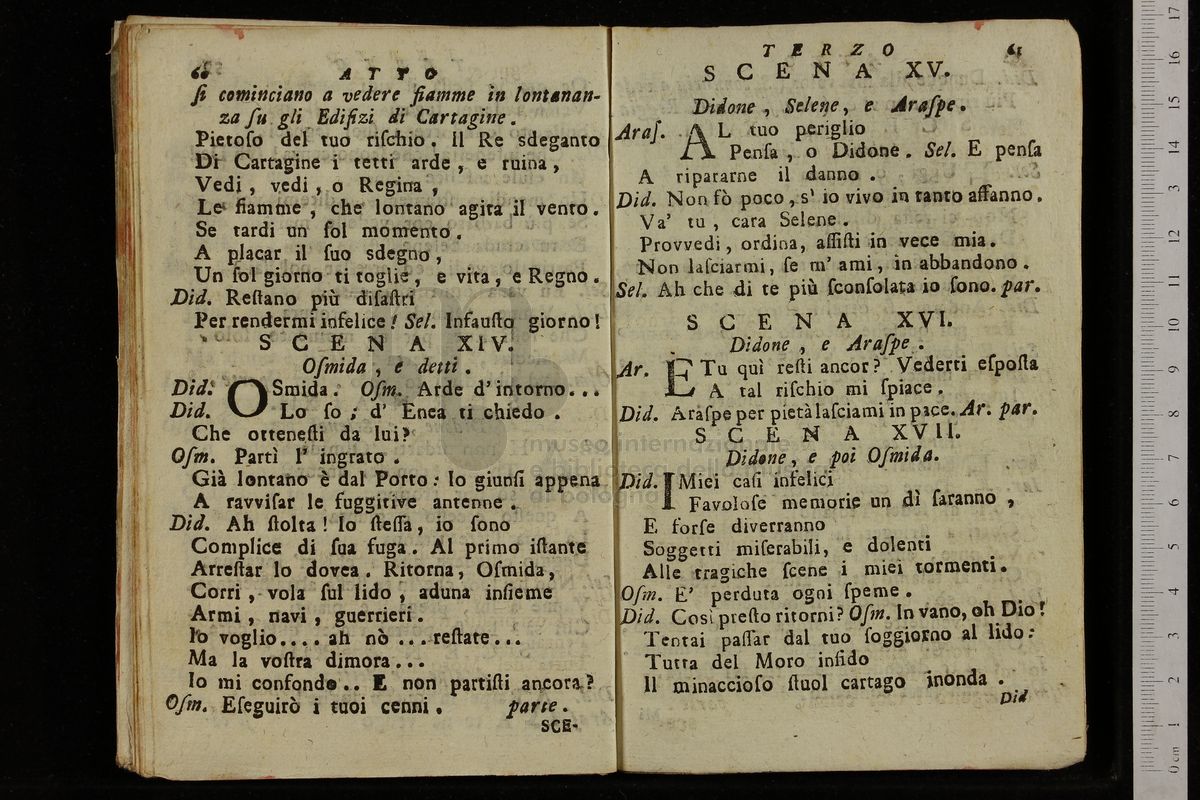 60 ATTO
ſi cominciano a vedere fiamme in lontanan-
za ſu gli Edifizi di Cartagine.
Pietoſo del tuo riſchio. Il Re sdeganto
Di Cartagine i tetti arde, e ruina,
Vedi, vedi, o Regina,
Le fiamme, che lontano agita il vento.
Se tardi un ſol momento.
A placar il ſuo sdegno,
Un ſol giorno ti toglie, e vita, e Regno.
Did. Reſtano più diſaſtri
Per rendermi infelice! Sel. Infauſto giorno!
SCENA XIV.
Oſmida, e detti.
Did. OSmida. Oſm. Arde d'intorno...
Did. Lo ſo; d' Enea ti chiedo.
Che otteneſti da lui?
Oſm. Partì l' ingrato.
Già lontano è dal Porto: Io giunſi appena
A ravviſar le fuggitive antenne.
Did. Ah ſtolta! Io ſteſſa, io ſono
Complice di ſua fuga. Al primo iſtante
Arreſtar lo dovea. Ritorna, Oſmida,
Corri, vola ſul lido, aduna inſieme
Armi, navi, guerrieri.
Io voglio.... ah nò ... reſtate...
Ma la voſtra dimora...
Io mi confondo.. E non partiſti ancora?
Oſm. Eſeguirò i tuoi cenni. parte.
SCE-
TERZO 61
SCENA XV.
Didone, Selene, e Araſpe.
Araſ. AL tuo periglio
Penſa, o Didone. Sel. E penſa
A ripararne il danno.
Did. Non fò poco, s' io vivo in tanto affanno.
Va' tu, cara Selene.
Provvedi, ordina, aſſiſti in vece mia.
Non laſciarmi, ſe m' ami, in abbandono.
Sel. Ah che di te più ſconſolata io ſono. par.
SCENA XVI.
Didone, e Araſpe.
Ar. E Tu quì reſti ancor? Vederti eſpoſta
A tal riſchio mi ſpiace.
Did. Araſpe per pietà laſciami in pace. Ar. par.
SCENA XVII.
Didone, e poi Oſmida.
Did. I Miei caſi infelici
Favoloſe memorie un dì ſaranno,
E forſe diverranno
Soggetti miſerabili, e dolenti
Alle tragiche ſcene i miei tormenti.
Oſm. E' perduta ogni ſpeme.
Did. Così preſto ritorni? Oſm. In vano, oh Dio!
Tentai paſſar dal tuo ſoggiorno al lido:
Tutta del Moro infido
Il minaccioſo ſtuol cartago inonda.
Did